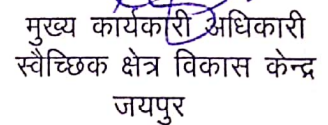 मुख्य कार्यकारी अधिकारी
स्वैच्छिक क्षेत्र विकास केन्द्र
जयपुर